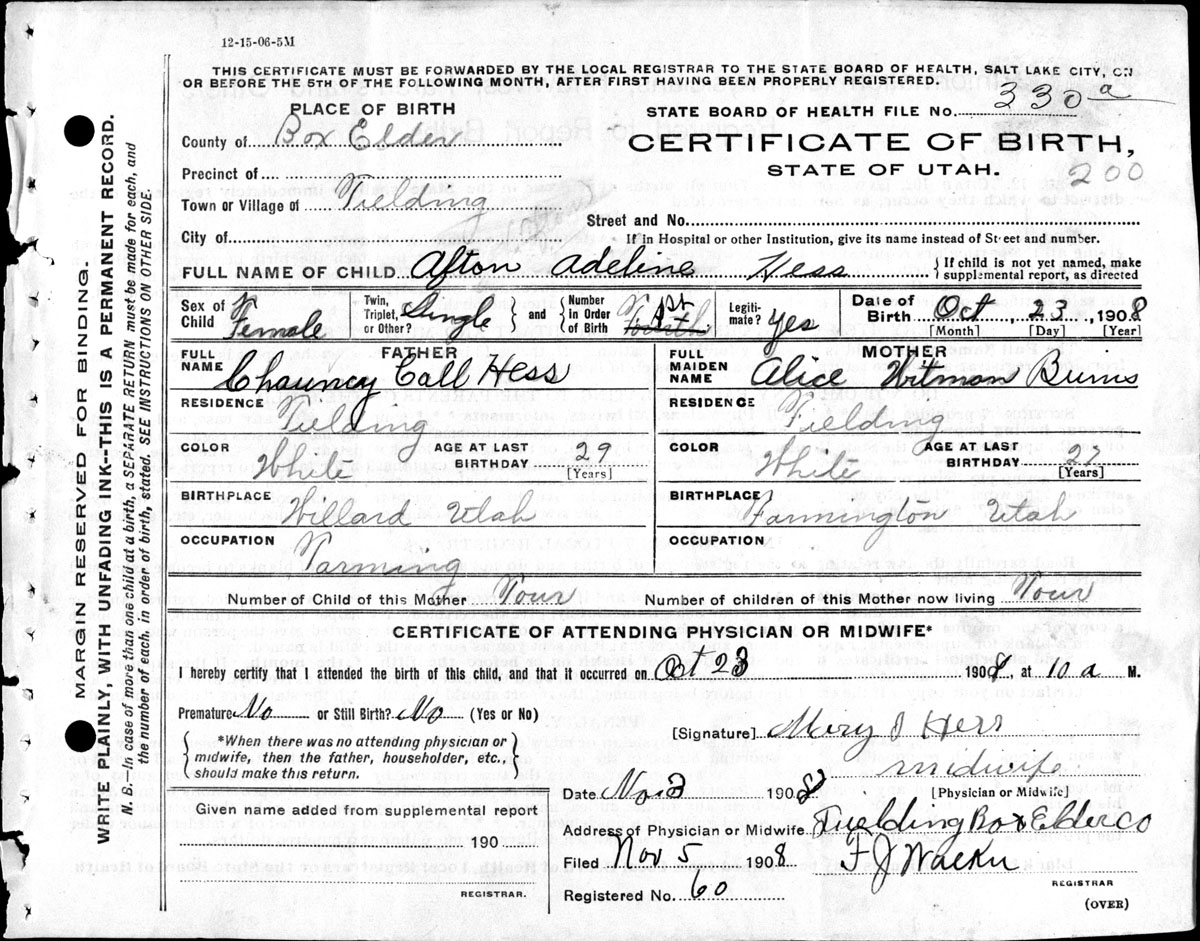 12-15-06-5M
THIS CERTIFICATE MUST BE FORWARDED BY THE LOCAL REGISTRAR TO THE STATE BOARD OF HEALTH, SALT LAKE CITY, ON
OR BEFORE THE 5TH OF THE FOLLOWING MONTH, AFTER FIRST HAVING BEEN PROPERLY REGISTERED.
PLACE OF BIRTH
STATE BOARD OF HEALTH FILE No. 330 a
County of Box Elder
CERTIFICATE OF BIRTH,
Precinct of
STATE OF UTAH.
200
Town or Village of Fielding
Street and No.
City of
If in Hospital or other Institution, give its name instead of Street and number.
FULL NAME OF CHILD Afton Adeline Hess { If child is not yet named, make
supplemental report, as directed
Sex of Child Female
Twin, Triplet, or Other? Single
and
Number in Order of Birth 1st
Legitimate? yes
Date of Birth Oct 23 1908
[Month] [Day] [Year]
FATHER
FULL NAME Chauncy Call Hess
MOTHER
FULL MAIDEN NAME Alice Witman Burns
RESIDENCE Fielding
RESIDENCE Fielding
COLOR White AGE AT LAST BIRTHDAY 29 [Years]
COLOR White AGE AT LAST BIRTHDAY [Years]
BIRTHPLACE Willard Utah
BIRTHPLACE Farmington Utah
OCCUPATION Farming
OCCUPATION
Number of Child of this Mother Four
Number of children of this Mother now living Four
CERTIFICATE OF ATTENDING PHYSICIAN OR MIDWIFE*
I hereby certify that I attended the birth of this child, and that it occurred on Oct 23 1908, at 10 a M.
Premature No or Still Birth? No (Yes or No)
[Signature] Mary J Hess
midwife
[Physician or Midwife]
{ *When there was no attending physician or
midwife, then the father, householder, etc.,
should make this return. }
Date Nov 3 1908
Given name added from supplemental report
190
REGISTRAR.
Address of Physician or Midwife Fielding Box Elder Co
Filed Nov 5 1908
F J
REGISTRAR
Registered No. 60
(OVER)
MARGIN RESERVED FOR BINDING.
WRITE PLAINLY, WITH UNFADING INK--THIS IS A PERMANENT RECORD.
N. B.—In case of more than one child at a birth, a SEPARATE RETURN must be made for each, and
the number of each, in order of birth, stated. SEE INSTRUCTIONS ON OTHER SIDE.